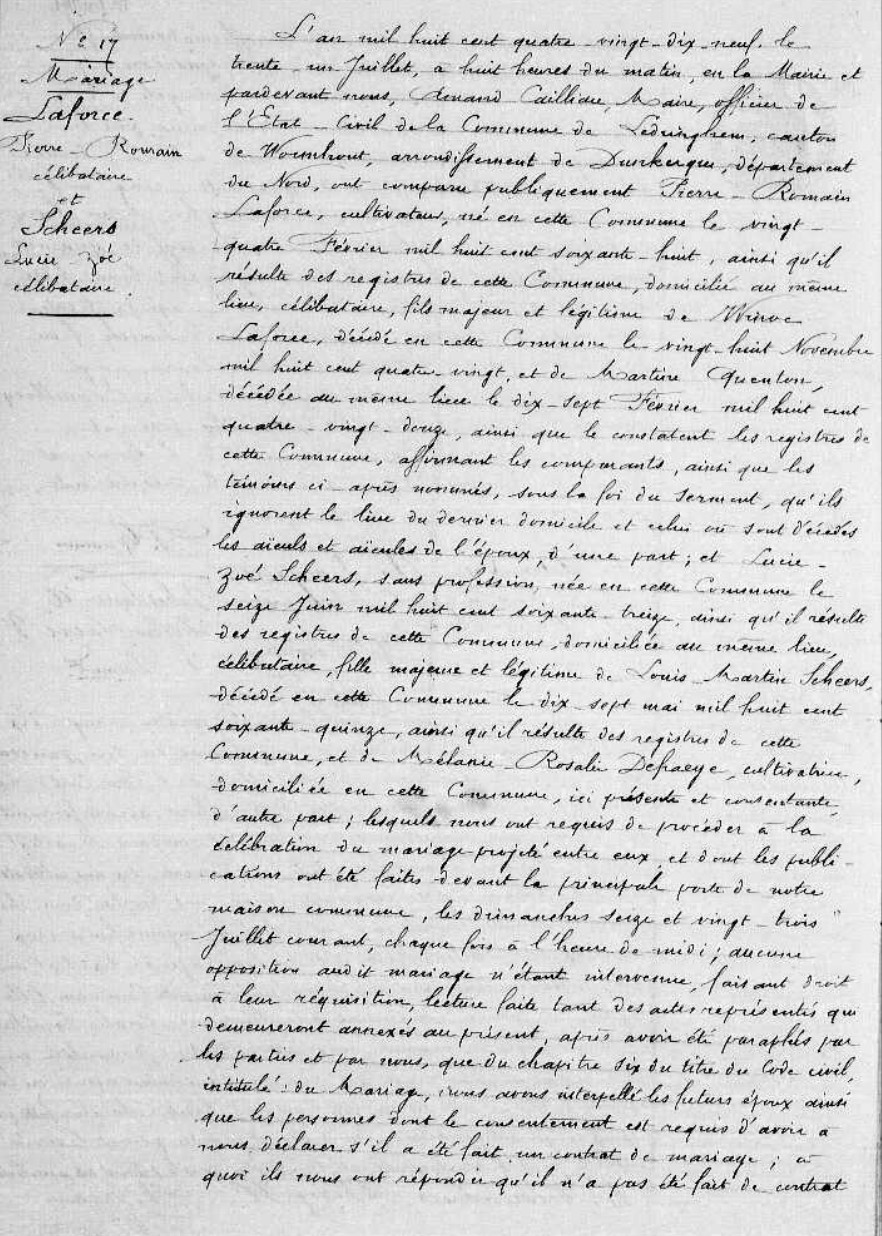 Nº 17
Mariage
Laforce
Pierre - Romain
célibataire
et
Scheers
Lucie Zoé
célibataire.
L'an mil huit cent quatre-vingt-dix-neuf, le
trente-un Juillet, à huit heures du matin, en la Mairie et
pardevant nous, Amand Cailliau, Maire, officier de
l'Etat-Civil de la Commune de Ledringhem, canton
de Wormhout, arrondissement de Dunkerque, département
du Nord, ont comparu publiquement Pierre-Romain
Laforce, cultivateur, né en cette Commune le vingt-
quatre Février mil huit cent soixante-huit, ainsi qu'il
résulte des registres de cette Commune, domicilié au même
lieu, célibataire, fils majeur et légitime de Winoc
Laforce, décédé en cette Commune le vingt-huit Novembre
mil huit cent quatre-vingt, et de Martine Quenton,
décédée au même lieu le dix-sept Février mil huit cent
quatre-vingt-douze, ainsi que le constatent les registres de
cette Commune, affirmant les comparants, ainsi que les
témoins ci-après nommés, sous la foi du serment, qu'ils
ignorent le lieu du dernier domicile et celui où sont décédés
les aïeuls et aïeules de l'époux, d'une part; et Lucie-
Zoé Scheers, sans profession, née en cette Commune le
seize Juin mil huit cent soixante-treize, ainsi qu'il résulte
des registres de cette Commune, domiciliée au même lieu,
célibataire, fille majeure et légitime de Louis Martin Scheers,
décédé en cette Commune le dix-sept mai mil huit cent
soixante-quinze, ainsi qu'il résulte des registres de cette
Commune, et de Mélanie-Rosalie Defraeye, cultivatrice,
domiciliée en cette Commune, ici présente et consentante,
d'autre part; lesquels nous ont requis de procéder à la
célébration du mariage projeté entre eux, et dont les publi-
cations ont été faites devant la principale porte de notre
maison commune, les dimanches seize et vingt-trois
Juillet courant, chaque fois à l'heure de midi; aucune
opposition audit mariage n'étant intervenue, faisant droit
à leur réquisition, lecture faite tant des actes représentés qui
demeureront annexés au présent, après avoir été paraphés par
les parties et par nous, que du chapitre six du titre du Code civil,
intitulé: du Mariage, nous avons interpellé les futurs époux ainsi
que les personnes dont le consentement est requis d'avoir à
nous déclarer s'il a été fait un contrat de mariage; à
quoi ils nous ont répondu qu'il n'a pas été fait de contrat